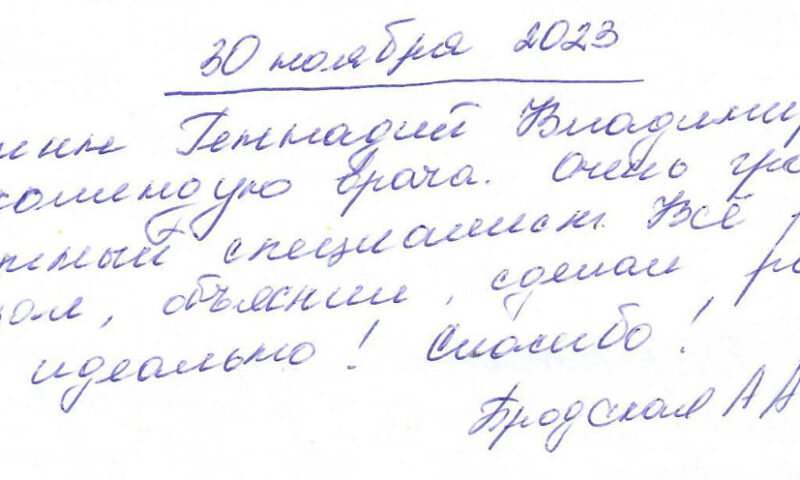 30 ноября 2023
Геннадий Владимир
комендую врача. Очень гра
тный специалист. Всё р
зал, объяснил, сделал
идеально! Спасибо!
Бродская А А